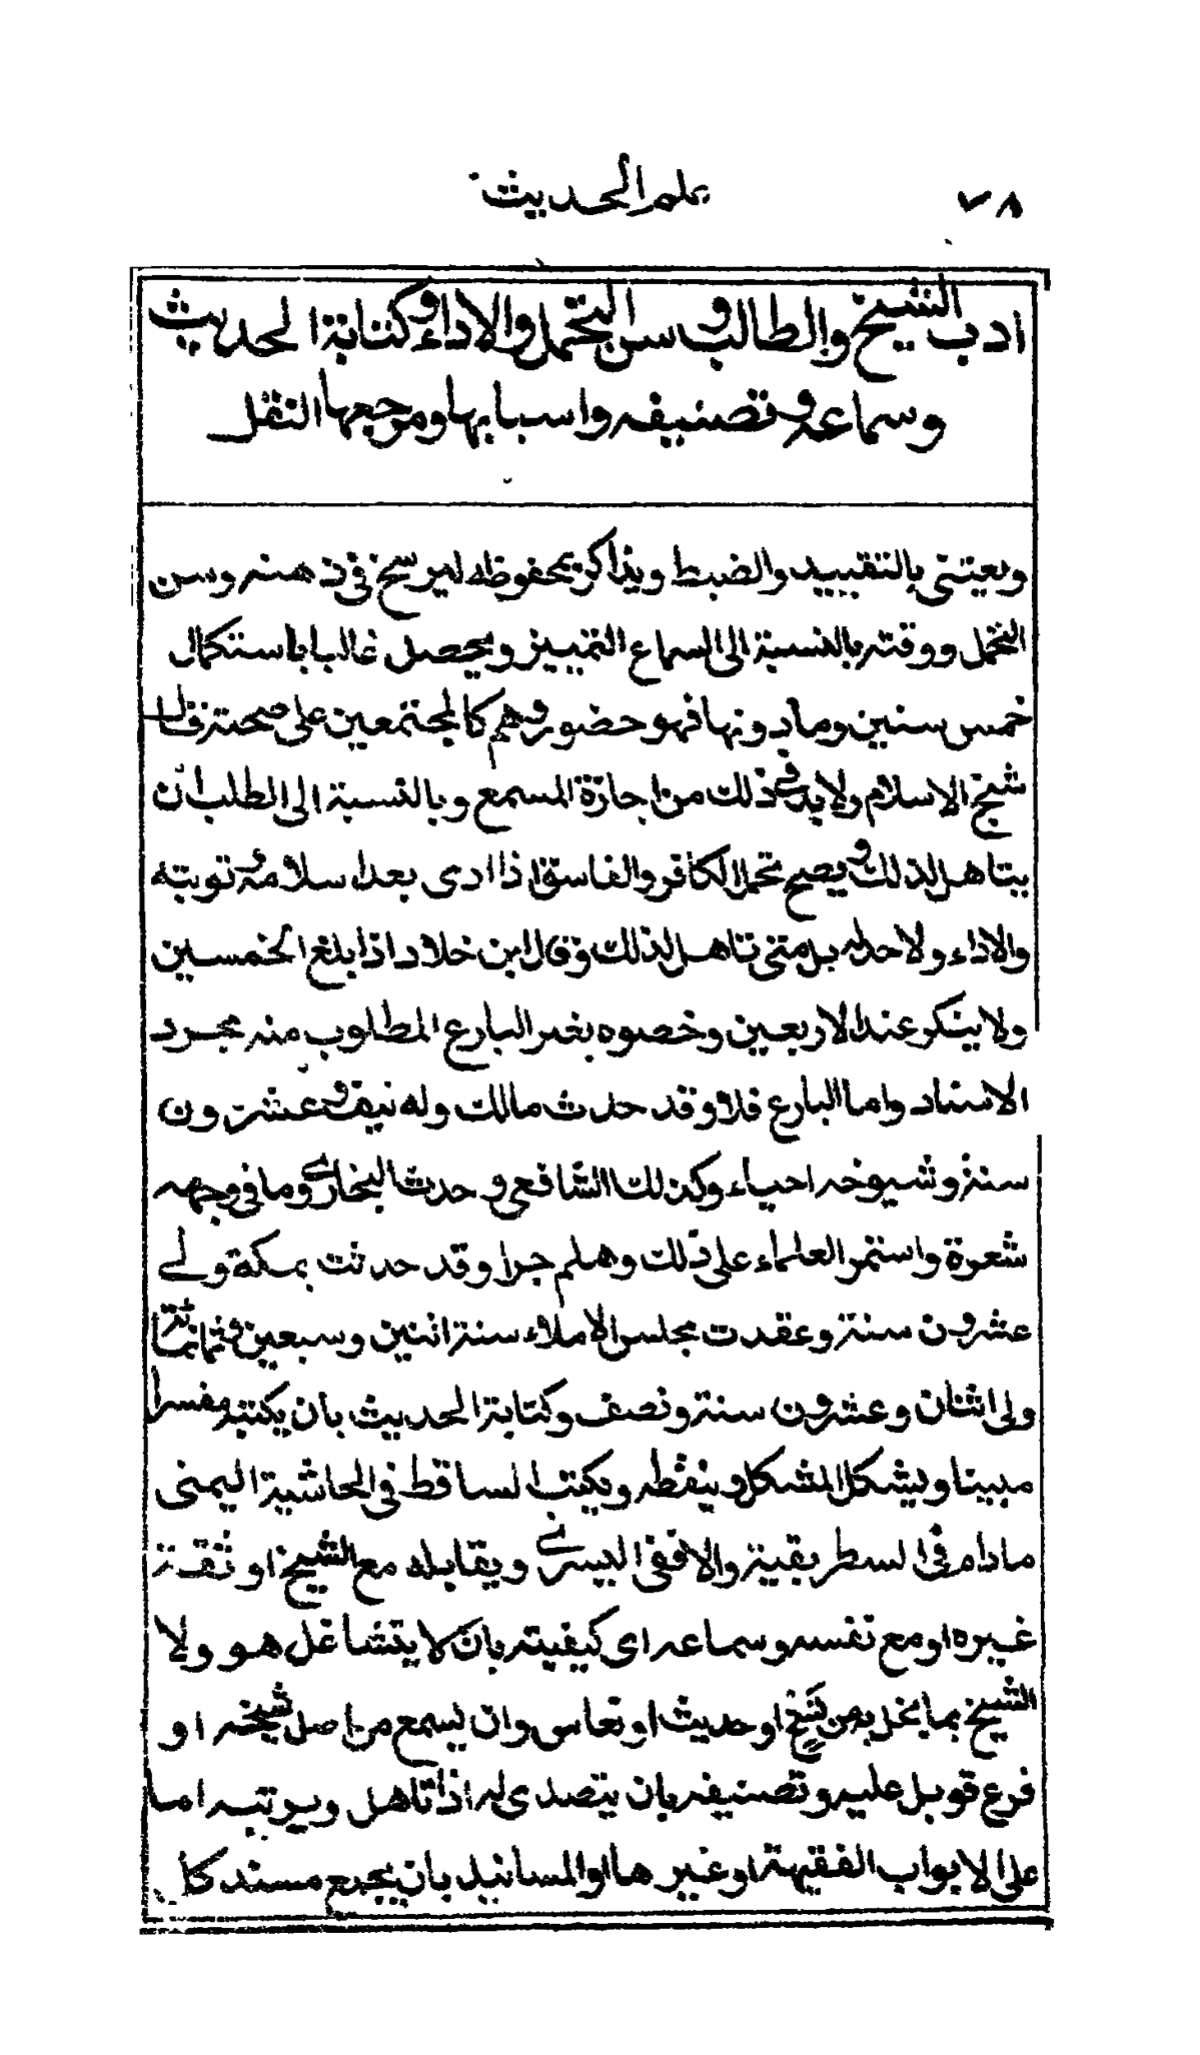 ٧٨
علم الحديث
ادب الشيخ والطالب وسن التحمل والاداء وكتابة الحديث
وسماعه وتصنيفه واسبابها ومرجعها النقل
ويعتنى بالتقييد والضبط ويذاكر بمحفوظه ليرسخ فى ذهنه وسن
التحمل ووقته بالنسبة الى السماع التمييز ويحصل غالبا باستكمال
خمس سنين وما دونها فهو حضور وهم كالمجتمعين على صحته قال
شيخ الاسلام ولابد فى ذلك من اجازة المسمع وبالنسبة الى الطلب ان
يتاهل لذلك ويصح تحمل الكافر والفاسق اذا ادى بعد اسلامه توبته
والاداء ولا حد له بل متى تاهل لذلك وقال ابن خلاد اذا بلغ الخمسين
ولا ينكر عند الاربعين وخصوه بغير البارع المطلوب منه مجرد
الاسناد واما البارع فلا وقد حدث مالك وله نيف وعشرون
سنة وشيوخه احياء وكذلك الشافعى وحدث البخارى وما فى وجهه
شعرة واستمر العلماء على ذلك وهلم جرا وقد حدثت بمكة ولے
عشرون سنة وعقدت مجلس الاملاء سنة اثنين وسبعين وثمانمائة
ولى اثنان وعشرون سنة ونصف وكتابة الحديث بان يكتبه مفسرا
مبينا ويشكل المشكل وينقطه ويكتب الساقط فى الحاشية اليمنى
مادام فى السطر بقية والا ففى اليسرى ويقابله مع الشيخ او ثقة
غيره او مع نفسه وسماعه اى كيفيته بان لا يتشاغل هو ولا
الشيخ بما يخل به من نسخ او حديث او نعاس وان يسمع من اصل شيخه او
فرع قوبل عليه وتصنيفه بان يتصدى له اذا تاهل ويرتبه اما
على الابواب الفقهية او غيرها او المسانيد بان يجمع مسند كل